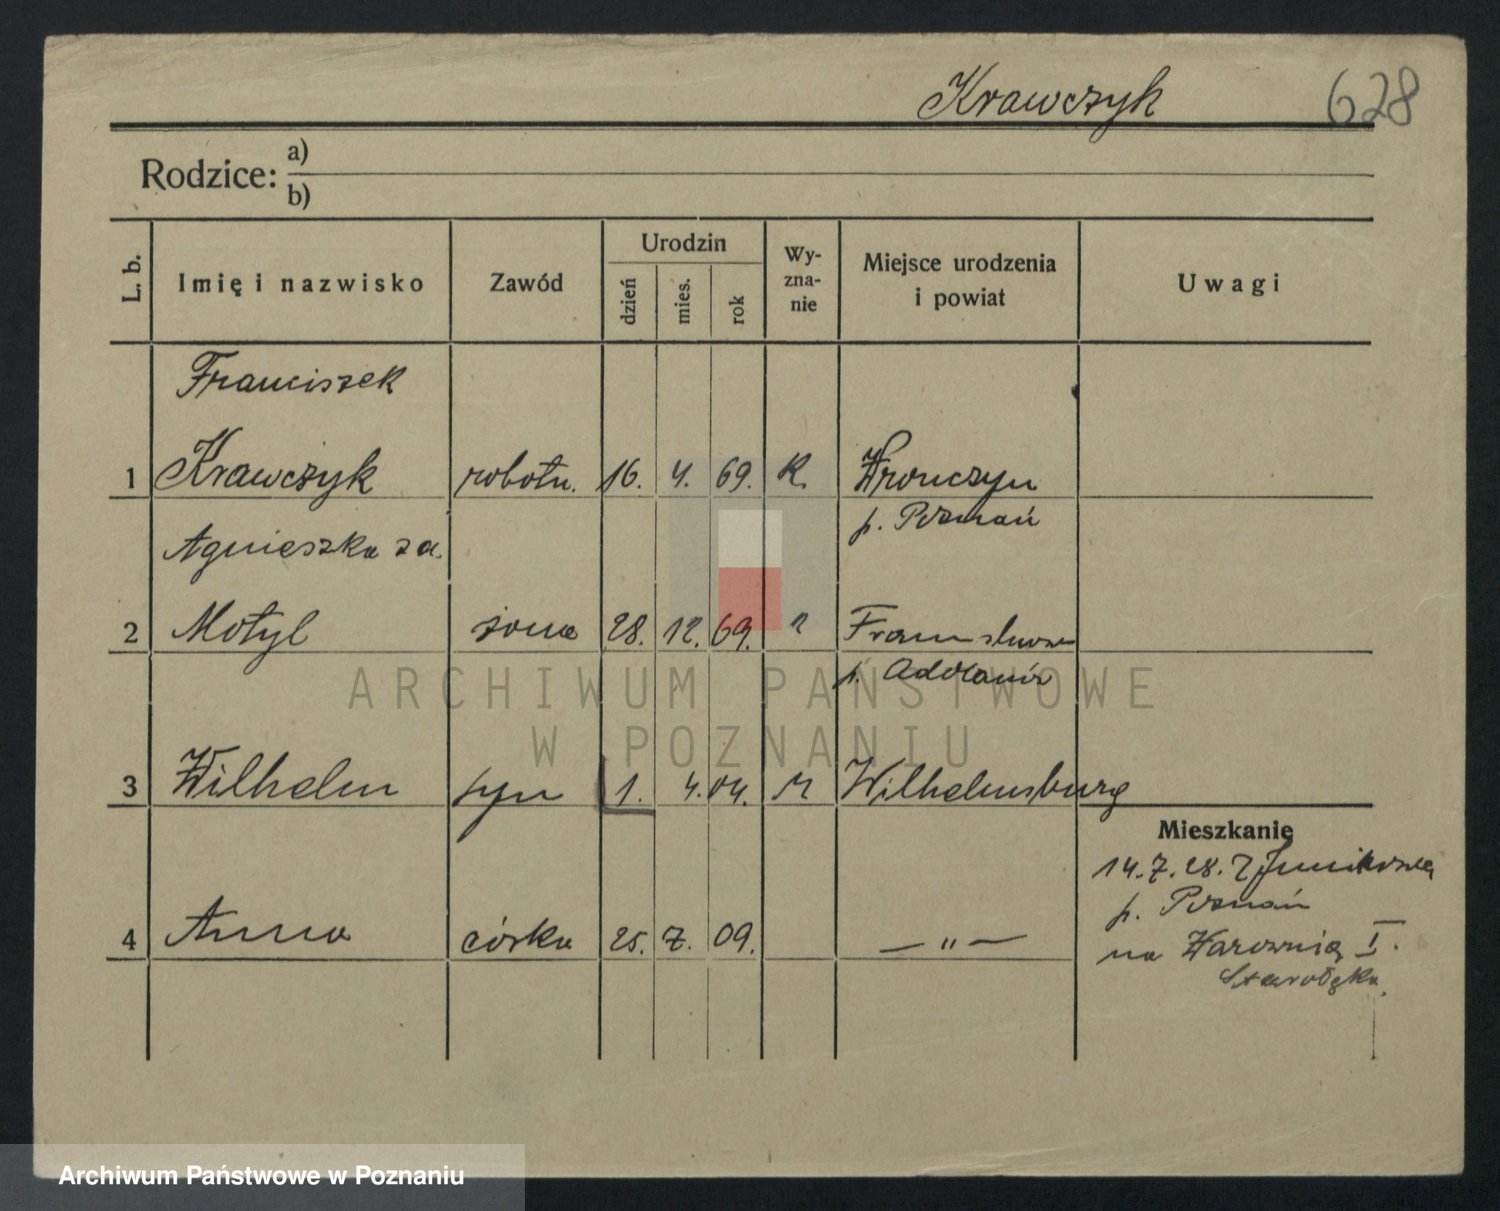 Krawczyk 628
Rodzice: a)
b)
L. b. Imię i nazwisko Zawód Urodzin dzień mies. rok Wyznanie Miejsce urodzenia i powiat Uwagi
Franciszek
1 Krawczyk robotn. 16. 4. 69. K. Wronczyn
p. Poznań
Agnieszka za.
2 Motyl żona 28. 12. 69. "
p. Adolanów
3 Wilhelm syn 1. 4. 04. " Wilhelmsburg
Mieszkanie
14.7.28. Z Junikowa
p. Poznań
4 Anna córka 25. 7. 09. — " —
na Warownię I.
Starołęka.
ARCHIWUM PAŃSTWOWE
W POZNANIU
Archiwum Państwowe w Poznaniu